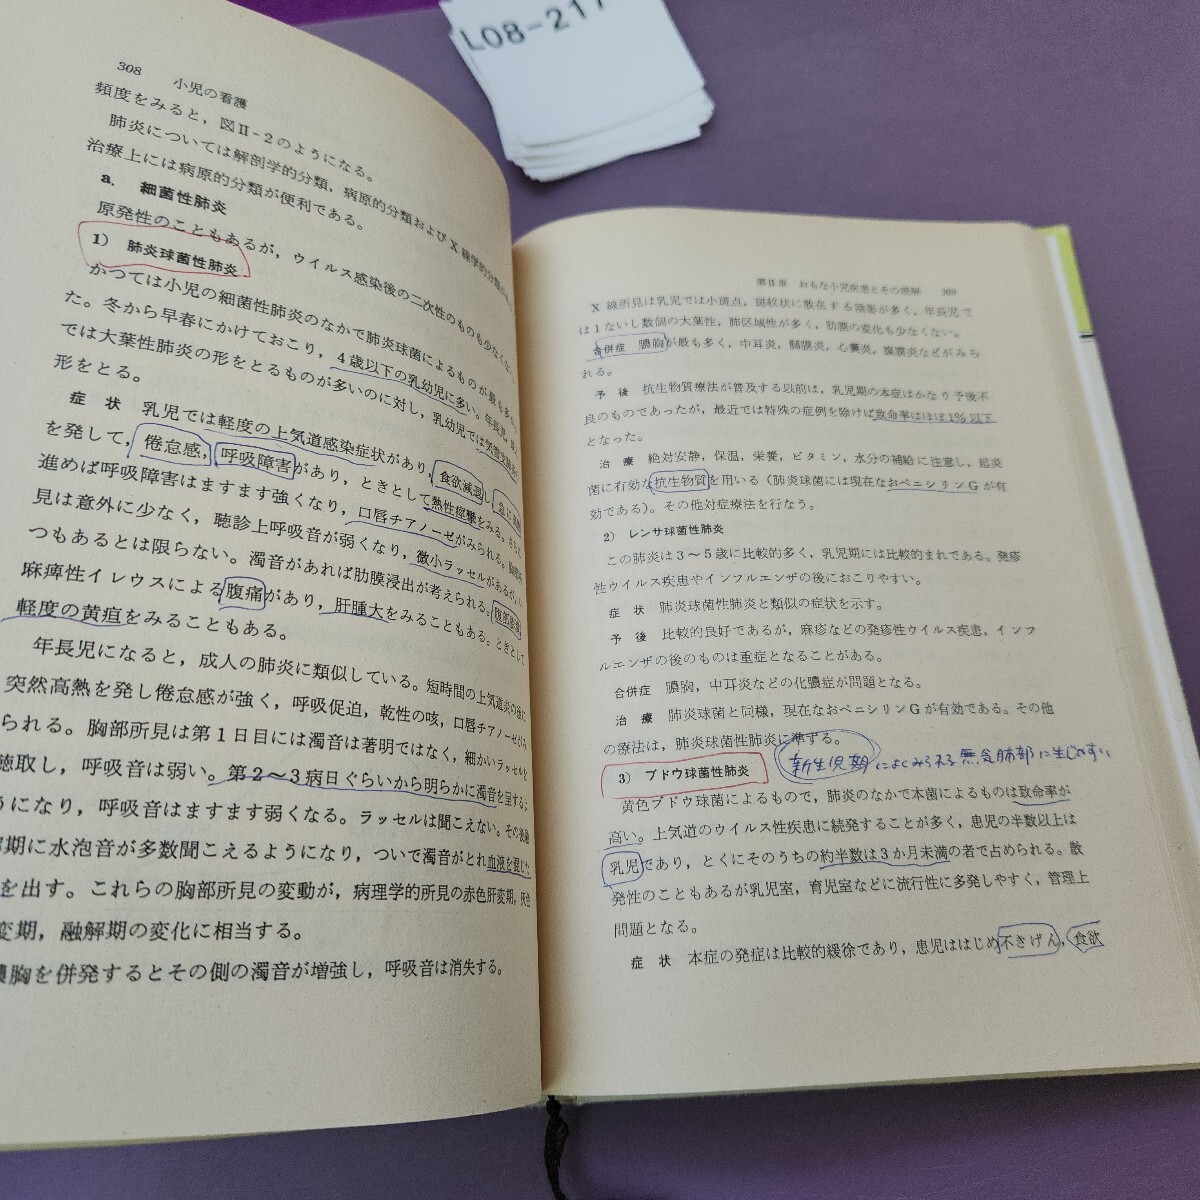 L08-217
308 小児の看護
頻度をみると，図Ⅱ-2のようになる。
肺炎については解剖学的分類，病原的分類およびX線学的分類が
治療上には病原的分類が便利である。
a. 細菌性肺炎
原発性のこともあるが，ウイルス感染後の二次性のものも少なくな
1) 肺炎球菌性肺炎
かつては小児の細菌性肺炎のなかで肺炎球菌によるものが最も多
た。冬から早春にかけておこり，4歳以下の乳幼児に多い。年長児，
では大葉性肺炎の形をとるものが多いのに対し，乳幼児では気管支肺炎の
形をとる。
症 状 乳児では軽度の上気道感染症状があり，食欲減退し，急に高熱
を発して，倦怠感，呼吸障害があり，ときとして熱性痙攣をみる。さらに
進めば呼吸障害はますます強くなり，口唇チアノーゼがみられる。胸部所
見は意外に少なく，聴診上呼吸音が弱くなり，微小ラッセルがあるが，い
つもあるとは限らない。濁音があれば肋膜浸出が考えられる。腹部膨満
麻痺性イレウスによる腹痛があり，肝腫大をみることもある。ときとして
軽度の黄疸をみることもある。
年長児になると，成人の肺炎に類似している。短時間の上気道炎の後に
突然高熱を発し倦怠感が強く，呼吸促迫，乾性の咳，口唇チアノーゼがみ
られる。胸部所見は第1日目には濁音は著明ではなく，細かいラッセルを
聴取し，呼吸音は弱い。第2〜3病日ぐらいから明らかに濁音を呈するよ
うになり，呼吸音はますます弱くなる。ラッセルは聞こえない。その後融
解期に水泡音が多数聞こえるようになり，ついで濁音がとれ血液を混じた
を出す。これらの胸部所見の変動が，病理学的所見の赤色肝変期，灰色
変期，融解期の変化に相当する。
膿胸を併発するとその側の濁音が増強し，呼吸音は消失する。
第Ⅱ章 おもな小児疾患とその理解 309
X線所見は乳児では小斑点，斑紋状に散在する陰影が多く，年長児で
は1ないし数個の大葉性，肺区域性が多く，肋膜の変化も少なくない。
合併症 膿胸が最も多く，中耳炎，髄膜炎，心嚢炎，腹膜炎などがみら
れる。
予 後 抗生物質療法が普及する以前は，乳児期の本症はかなり予後不
良のものであったが，最近では特殊の症例を除けば致命率はほぼ1％以下
となった。
治 療 絶対安静，保温，栄養，ビタミン，水分の補給に注意し，起炎
菌に有効な抗生物質を用いる（肺炎球菌には現在なおペニシリンGが有
効である）。その他対症療法を行なう。
2) レンサ球菌性肺炎
この肺炎は3〜5歳に比較的多く，乳児期には比較的まれである。発疹
性ウイルス疾患やインフルエンザの後におこりやすい。
症 状 肺炎球菌性肺炎と類似の症状を示す。
予 後 比較的良好であるが，麻疹などの発疹性ウイルス疾患，インフ
ルエンザの後のものは重症となることがある。
合併症 膿胸，中耳炎などの化膿症が問題となる。
治 療 肺炎球菌と同様，現在なおペニシリンGが有効である。その他
の療法は，肺炎球菌性肺炎に準ずる。
3) ブドウ球菌性肺炎 新生児期によくみられる 無気肺部に生じやすい
黄色ブドウ球菌によるもので，肺炎のなかで本菌によるものは致命率が
高い。上気道のウイルス性疾患に続発することが多く，患児の半数以上は
乳児であり，とくにそのうちの約半数は3か月未満の者で占められる。散
発性のこともあるが乳児室，育児室などに流行性に多発しやすく，管理上
問題となる。
症 状 本症の発症は比較的緩徐であり，患児ははじめ不きげん，食欲